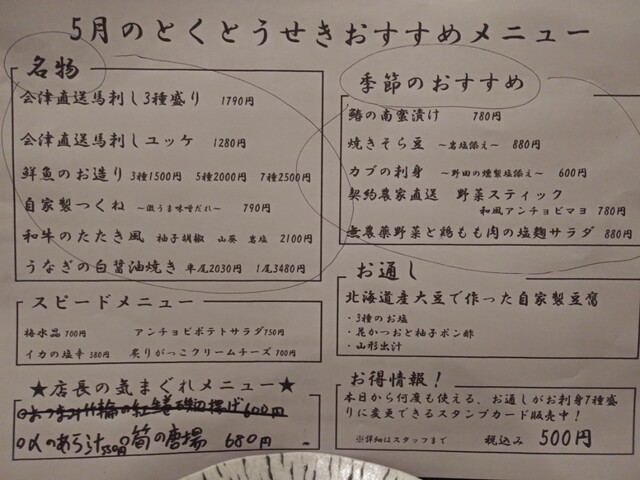 5月のとくとうせきおすすめメニュー
名物
会津直送馬刺し3種盛り 1790円
会津直送馬刺しユッケ 1280円
鮮魚のお造り 3種1500円 5種2000円 7種2500円
自家製つくね ～激うま味噌だれ～ 790円
和牛のたたき風 柚子胡椒 山葵 岩塩 2100円
うなぎの白醤油焼き 半尾2030円 1尾3480円
スピードメニュー
梅水晶 700円 アンチョビポテトサラダ750円
イカの塩辛 380円 炙りがっこクリームチーズ 700円
★店長の気まぐれメニュー★
の紅生姜磯辺揚げ 600円
のあら汁550円 筍の唐揚 680円
季節のおすすめ
鰆の南蛮漬け 780円
焼きそら豆 ～岩塩添え～ 880円
カブの刺身 ～野田の燻製塩添え～ 600円
契約農家直送 野菜スティック
和風アンチョビマヨ 780円
無農薬野菜と鶏もも肉の塩麹サラダ 880円
お通し
北海道産大豆で作った自家製豆腐
・3種のお塩
・花かつおと柚子ポン酢
・山形出汁
お得情報！
本日から何度も使える、お通しがお刺身7種盛
りに変更できるスタンプカード販売中！
※詳細はスタッフまで 税込み 500円